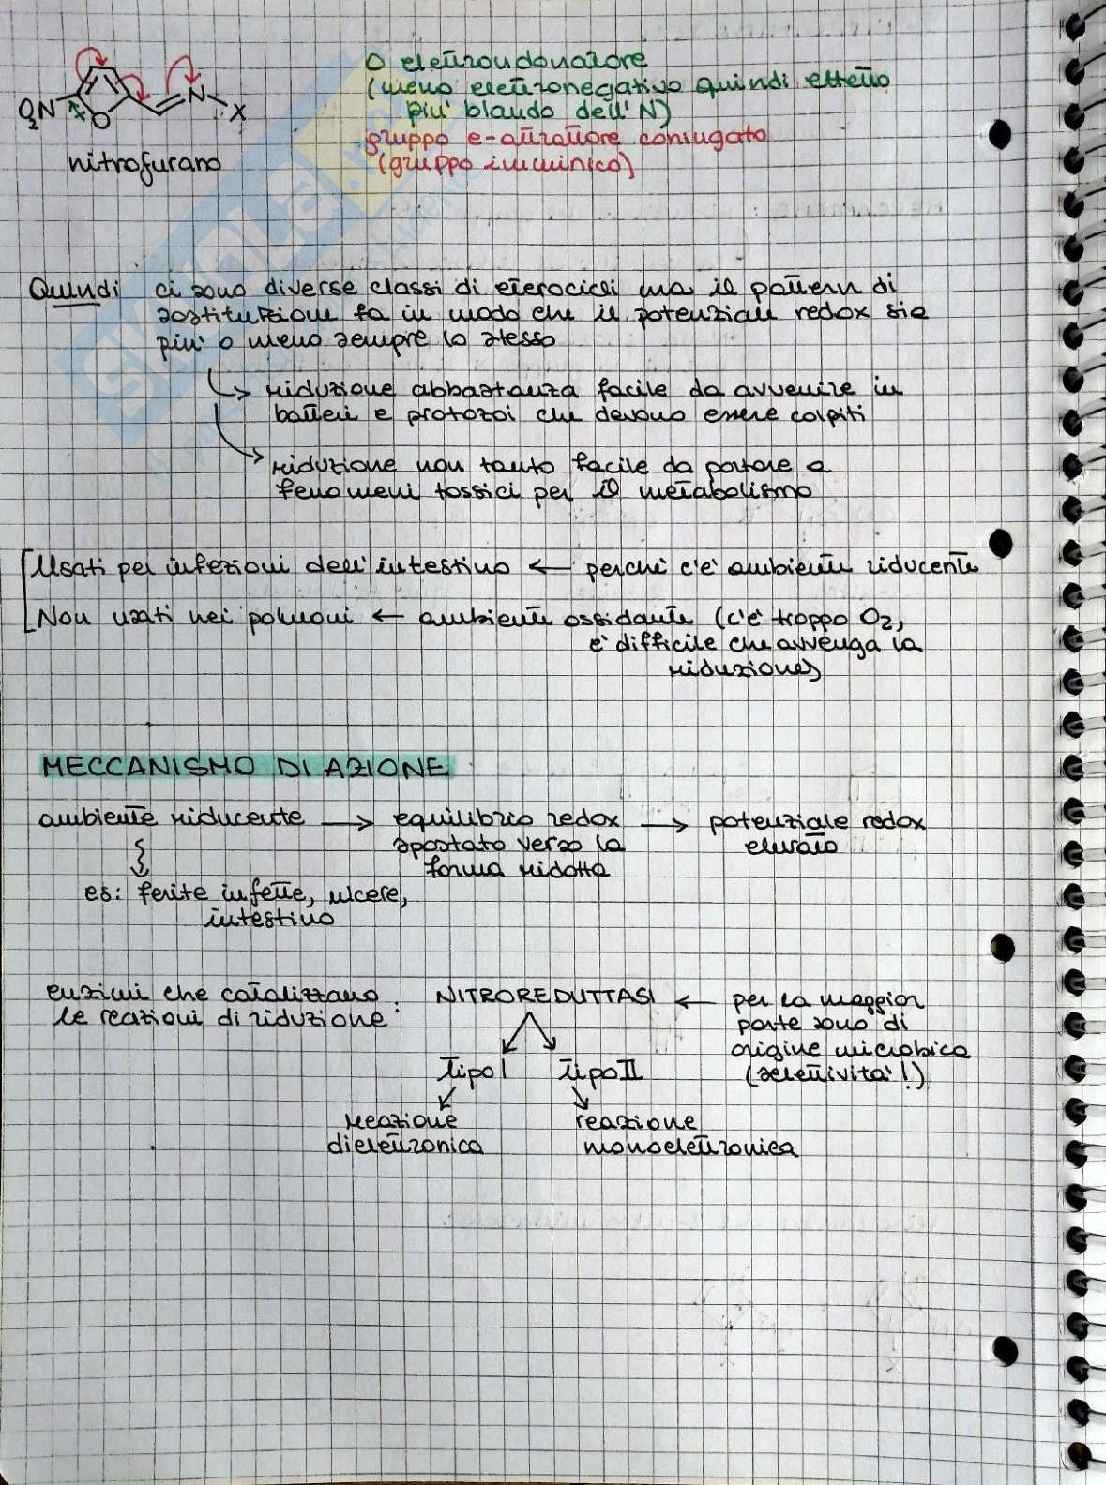 O elettrondonatore
(meno elettronegativo quindi effetto
più blando dell'N)
gruppo e-attrattore coniugato
(gruppo imminico)
O₂N O N X
nitrofurano
Quindi ci sono diverse classi di eterocicli ma il pattern di
sostituzione fa in modo che il potenziale redox sia
più o meno sempre lo stesso
riduzione abbastanza facile da avvenire in
batteri e protozoi che devono essere colpiti
riduzione non tanto facile da portare a
fenomeni tossici per il metabolismo
Usati per infezioni dell'intestino ← perché c'è ambiente riducente
Non usati nei polmoni ← ambiente ossidante (c'è troppo O₂,
è difficile che avvenga la
riduzione)
MECCANISMO DI AZIONE
ambiente riducente → equilibrio redox → potenziale redox
spostato verso la elevato
forma ridotta
es: ferite infette, ulcere,
intestino
enzimi che catalizzano : NITROREDUTTASI ← per la maggior
le reazioni di riduzione parte sono di
origine microbica
tipo I tipo II (selettività!)
reazione reazione
dielettronica monoelettronica